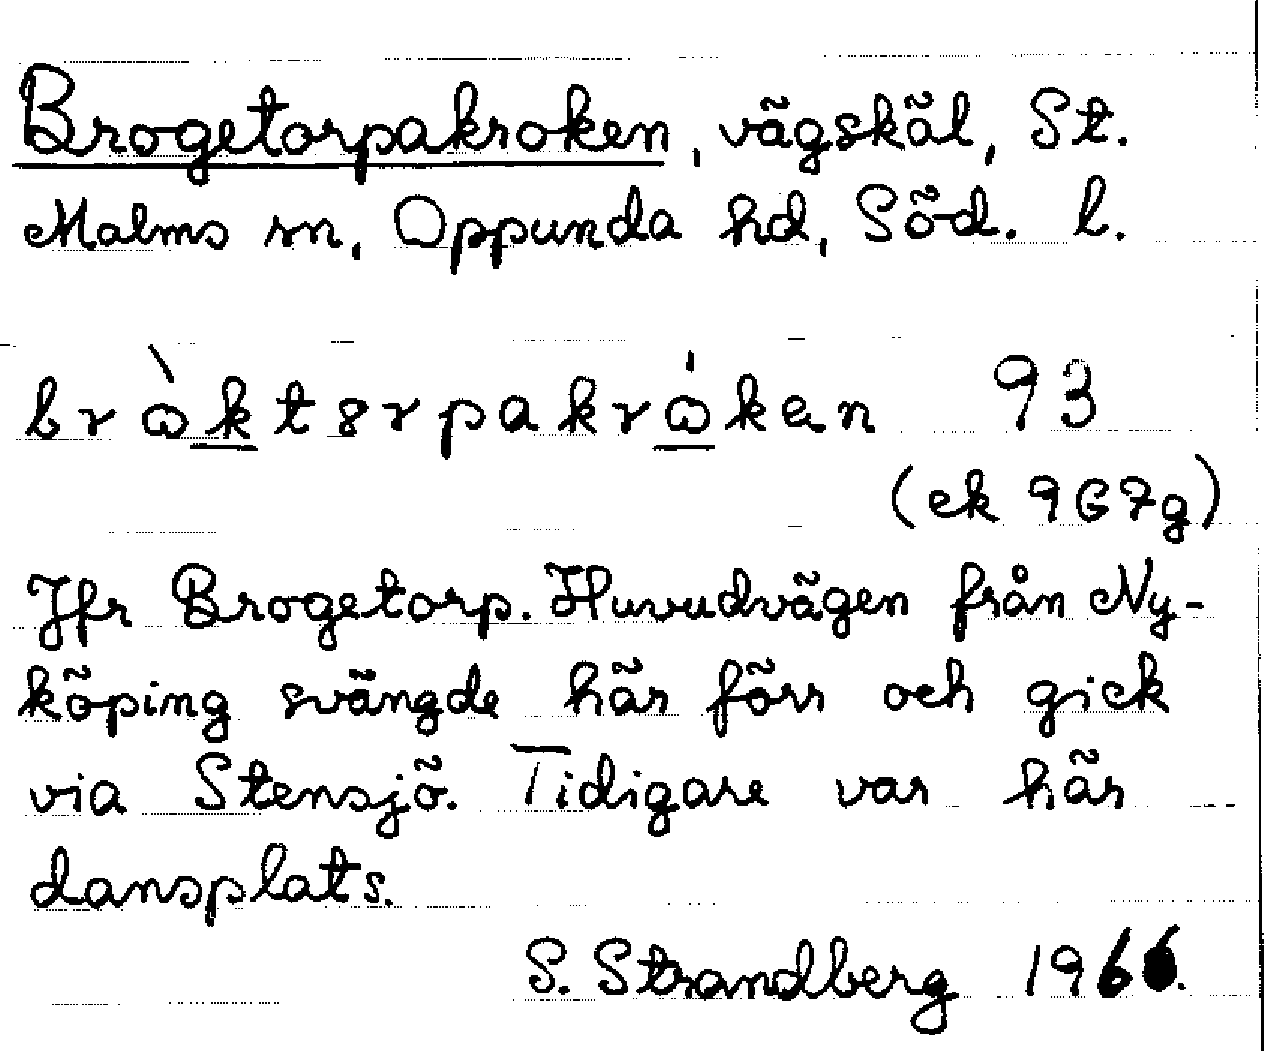 Brogetorpakroken, vägskäl, St.
Malms sn, Oppunda hd, Söd. l.
brὼktsrpakrώken 93
(ek 9G7g)
Jfr Brogetorp. Huvudvägen från Ny-
köping svängde här förr och gick
via Stensjö. Tidigare var här
dansplats.
S. Strandberg 1966.